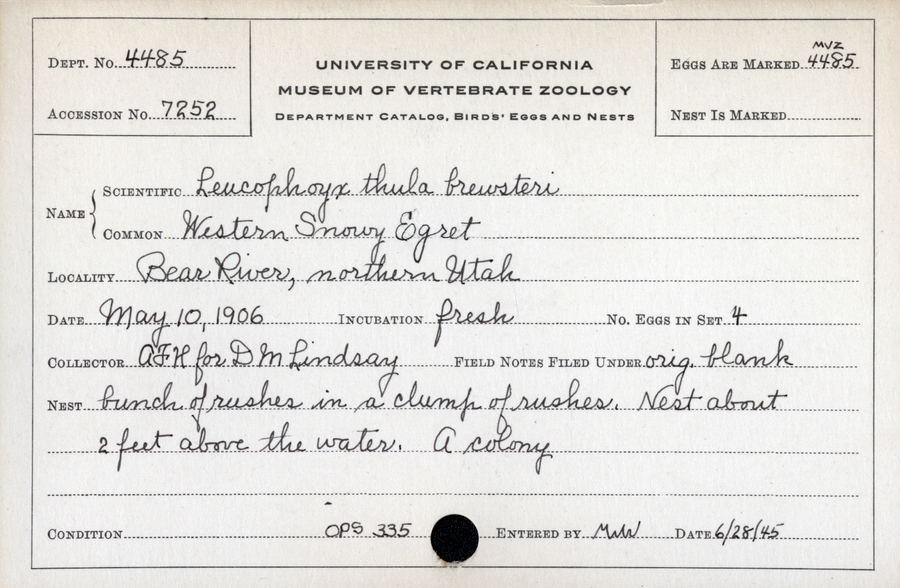 DEPT. NO. 4485
ACCESSION NO. 7252
UNIVERSITY OF CALIFORNIA
MUSEUM OF VERTEBRATE ZOOLOGY
DEPARTMENT CATALOG, BIRDS' EGGS AND NESTS
MVZ
EGGS ARE MARKED 4485
NEST IS MARKED
NAME
SCIENTIFIC Leucophoyx thula brewsteri
COMMON Western Snowy Egret
LOCALITY Bear River, northern Utah
DATE May 10, 1906 INCUBATION fresh NO. EGGS IN SET 4
COLLECTOR AFH for DM Lindsay FIELD NOTES FILED UNDER orig. blank
NEST bunch of rushes in a clump of rushes. Nest about
2 feet above the water. A colony
CONDITION OPS 335 ENTERED BY MWW DATE 6/28/45